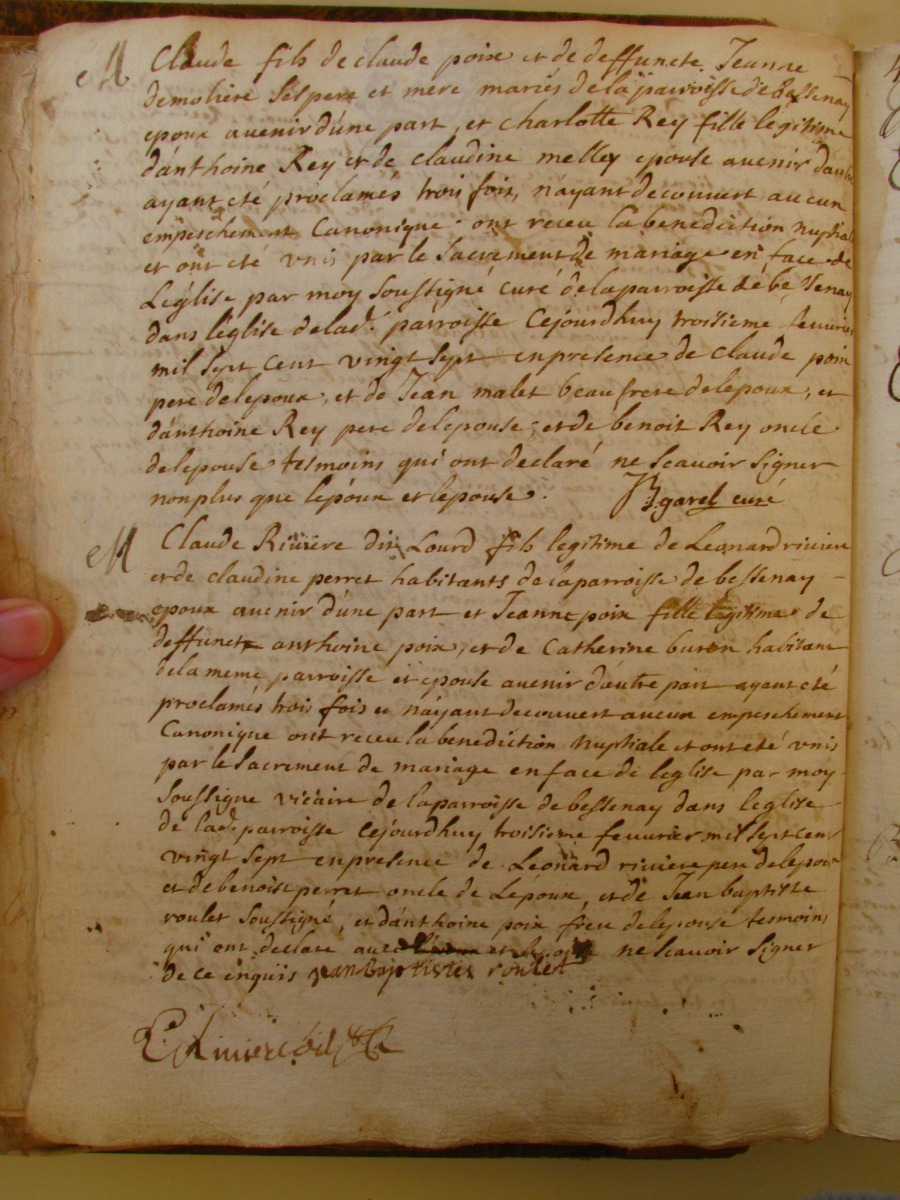 M Claude fils de claude poix et de deffuncte Jeanne
demoliere ses pere et mere mariés de la parroisse de Bessenay
epoux avenir d'une part, et charlotte Rey fille legitime
d'anthoine Rey et de claudine melley epouse avenir dautre
ayant eté proclamés trois fois, n'ayant decouvert aucun
empeschement Canonique ont receu la benediction nuptiale
et ont eté unis par le Sacrement de mariage en face de
Leglise par moy Soussigné curé de la parroisse de bessenay
dans leglise de lad. parroisse Cejourdhuy troisieme fevurier
mil sept cent vingt sept en presence de claude poix
pere de lepoux, et de Jean malet beaufrere de lepoux, et
d'anthoine Rey pere de lepouse, et de benoit Rey oncle
de lepouse tesmoins qui ont declaré ne scavoir signer
non plus que lepoux et lepouse. garel curé
M Claude Riviere dit Lourd fils legitime de Leonard riviere
et de claudine perret habitants de la parroisse de bessenay
epoux avenir d'une part et Jeanne poix fille legitime de
deffunct anthoine poix, et de Catherine buron habitant
de la meme parroisse et epouse avenir d'autre part ayant eté
proclamés trois fois et n'ayant decouvert aucun empeschement
Canonique ont receu la benediction nuptiale et ont eté unis
par le Sacrement de mariage en face de leglise par moy
Soussigne vicaire de la parroisse de bessenay dans leglise
de lad. parroisse Cejourdhuy troisieme fevurier mil sept cent
vingt sept en presence de Leonard riviere pere de lepoux
et de benoist perret oncle de Lepoux, et de Jean baptiste
roulet soussigné, et d'anthoine poix frere de lepouse tesmoins
qui ont declare avec ne scavoir signer
de ce enquis jean baptistes roulet